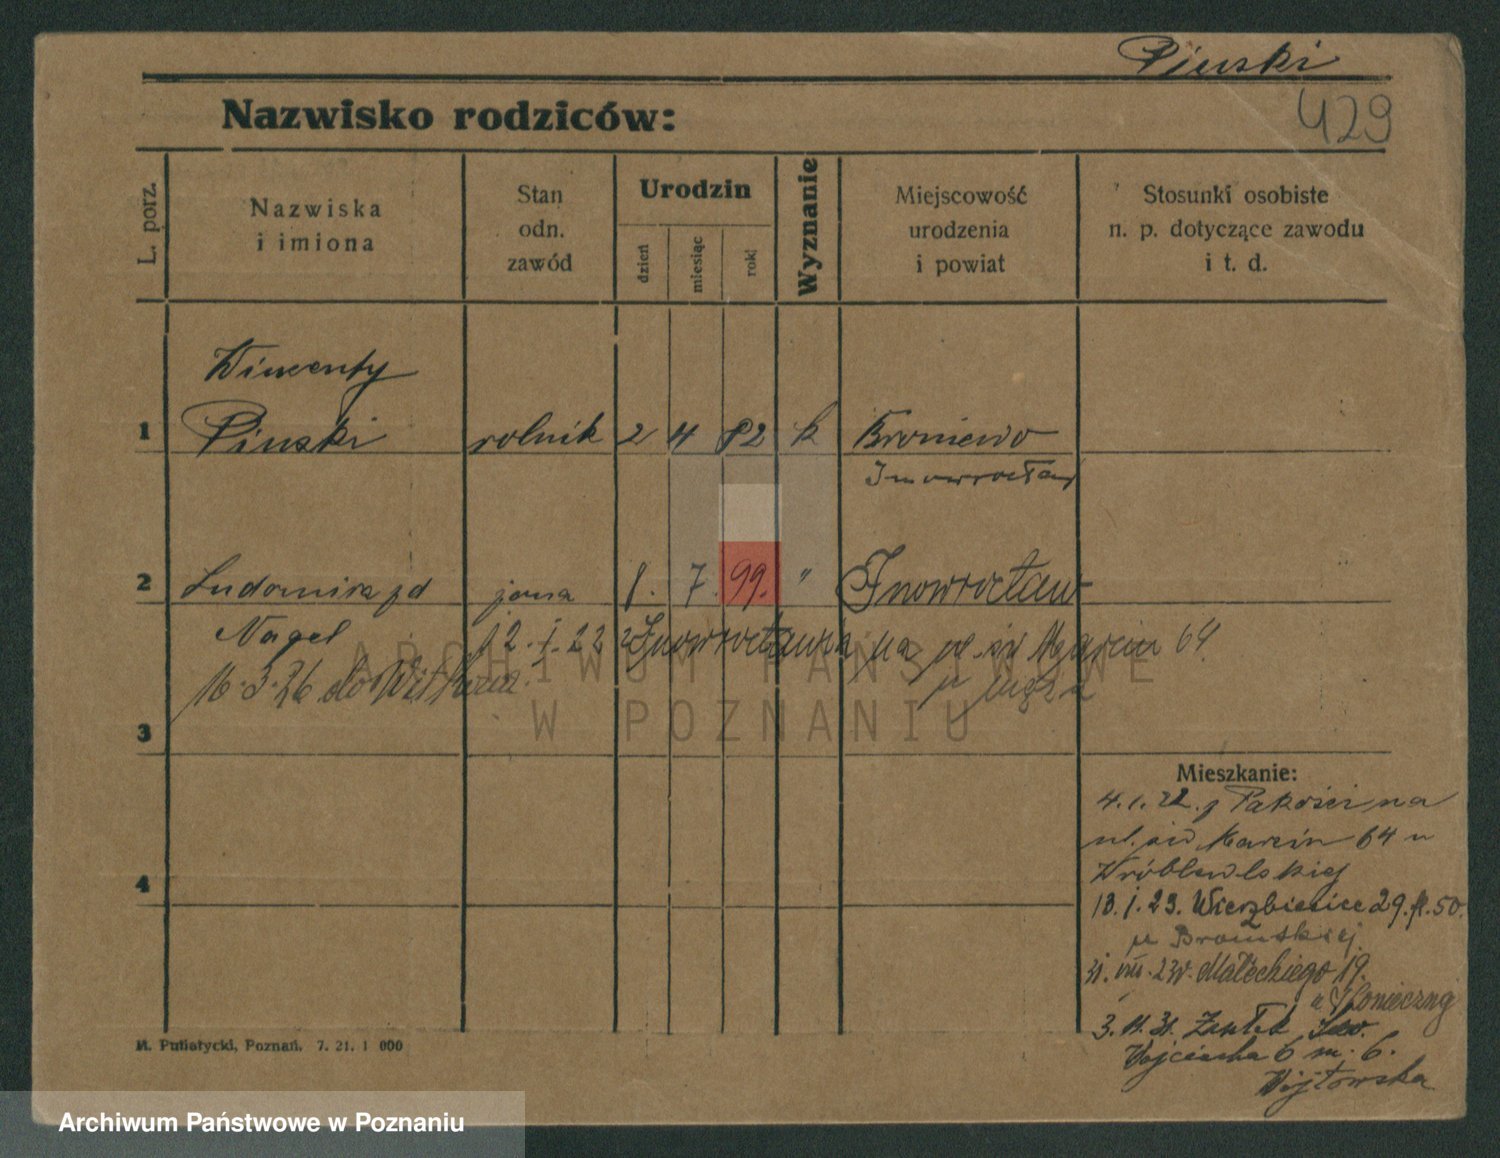 Piński
429
Nazwisko rodziców:
L. porz.
Nazwiska
i imiona
Stan
odn.
zawód
Urodzin
dzień
miesiąc
rok
Wyznanie
Miejscowość
urodzenia
i powiat
Stosunki osobiste
n. p. dotyczące zawodu
i t. d.
Wincenty
1 Piński rolnik 2 4 82 k Broniewo
Inowrocław
2 Ludomira zd żona 1. 7. 99. " Inowrocław
Nagel 12.1.22 z Inowrocławia na ul. św Marcin 64
16.3.26 do u męża
3
ARCHIWUM PAŃSTWOWE
W POZNANIU
Mieszkanie:
4.1.22. z Pakości na
ul. św Marcin 64 u
Wróblewskiej
4
18.1.23. Wierzbięcice 29. 50.
u Brońskiej
31. VIII. 23 Małeckiego 19.
u Koniecznej
3. 31. Św.
Wojciecha 6 m. 6.
Wójtowska
M. Putiatycki, Poznań. 7. 21. 1 000
Archiwum Państwowe w Poznaniu